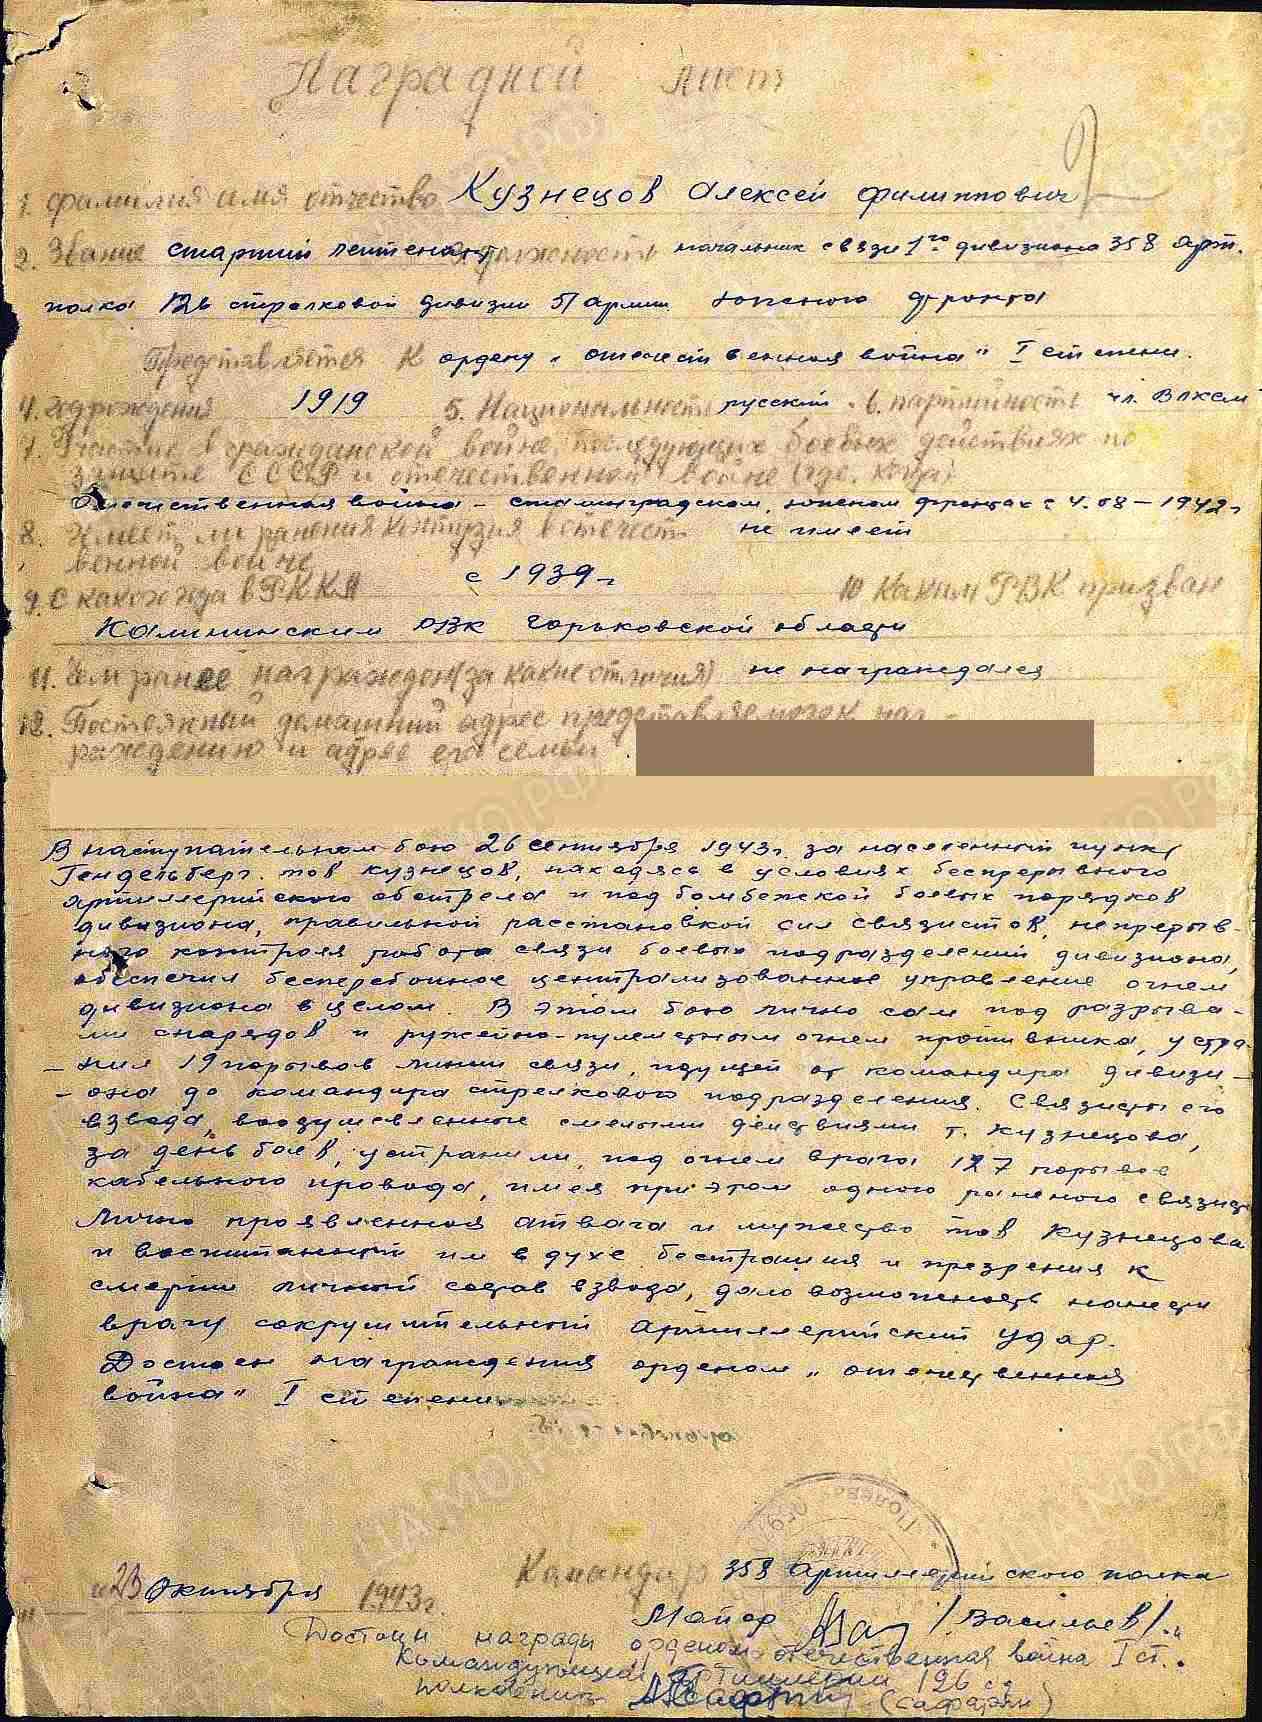 Наградной лист
1. Фамилия имя отчество Кузнецов Алексей Филиппович
2. Звание старший лейтенант должность начальник связи 1го дивизиона 358 арт.
полка 126 стрелковой дивизии 51 армии Южного фронта
Представляется к ордену „Отечественная война" I степени.
4. год рождения 1919 5. Национальность русский. 6. партийность чл. ВЛКСМ
7. Участие в гражданской войне, последующих боевых действиях по
защите СССР и отечественной войне (где. когда)
Отечественная война - сталинградском, южном фронтах с 4.08-1942г
8. Имеет ли ранения контузия в отечест
венной войне не имеет
9. С какого года в РККА с 1939г 10 Каким РВК призван
Калининским РВК Горьковской области
11. Чем ранее награжден (за какие отличия) не награждался
12. Постоянный домашний адрес представляемого к наг-
раждению и адрес его семьи
В наступательном бою 26 сентября 1943г. за населенный пункт
Гендельберг. тов Кузнецов, находясь в условиях беспрерывного
артиллерийского обстрела и под бомбежкой боевых порядков
дивизиона, правильной расстановкой сил связистов, непрерыв-
ного контроля работы связи боевых подразделений дивизиона,
обеспечил бесперебойное централизованное управление огнем
дивизиона в целом. В этом бою лично сам под разрыва-
ми снарядов и ружейно-пулеметным огнем противника, устра-
-нил 19 порывов линии связи, идущей от командира дивизи-
-она до командира стрелкового подразделения. Связисты его
взвода, воодушевленные смелыми действиями т. Кузнецова,
за день боев, устранили, под огнем врага 127 порывов
кабельного провода, имея при этом одного раненого связиста
Лично проявленная отвага и мужество тов Кузнецова
и воспитанный им в духе бесстрашия и презрения к
смерти личный состав взвода, дало возможность нанести
врагу сокрушительный артиллерийский удар.
Достоин награждения орденом „отечественная
война" I степени
Командир 358 Артиллерийского полка
„23 Октября 1943г.
Майор /Васильев/.
Достоин награды орденом отечественная война I ст.
Командующий Артиллерии 126 сд
полковник (Сафарян)
ЦАМО.РФ